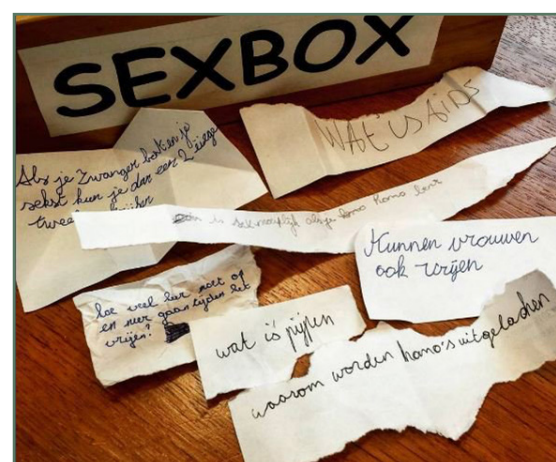 SEXBOX
WAT is AIDS
Als je zwanger bent en je
sekst kun je dan een 2 eiige
twee krijgen
is als je homo bent
Kunnen vrouwen
ook vrijen
hoe veel keer op
en neer gaan tijdens het
vrijen?
wat is pijpen
waarom worden homo's uitgelachen